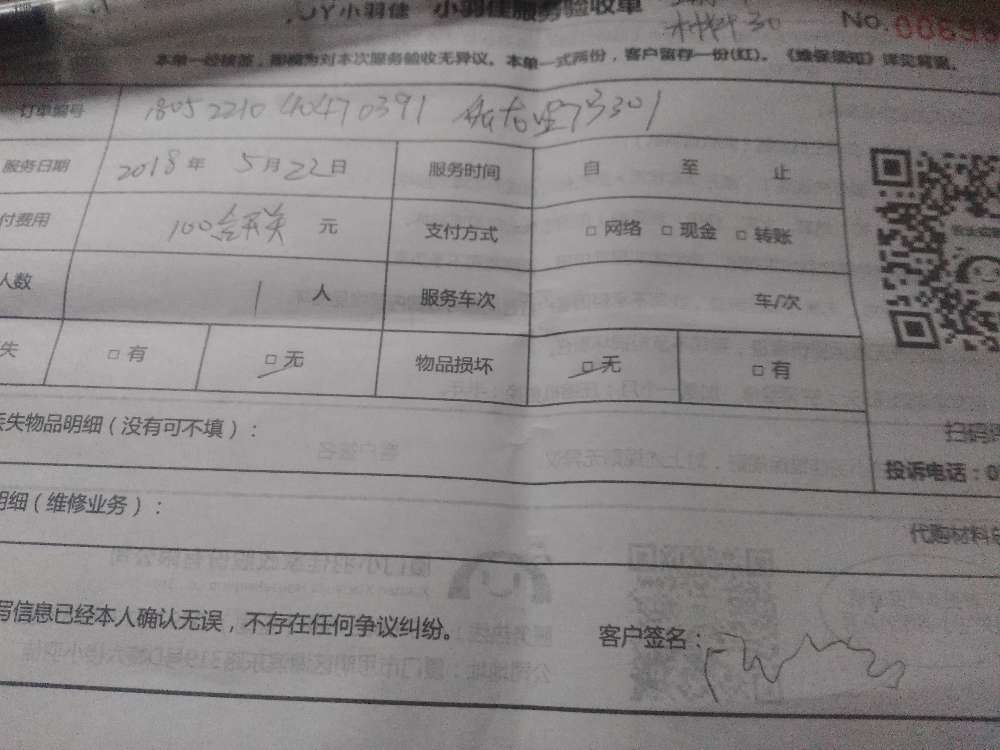 JY小羽佳 小羽佳服务验收单
材料30
No.
本单一经核签，即视为对本次服务验收无异议。本单一式两份，客户留存一份(红)。《维保须知》详见背面。
订单编号 1805221040470391 301
服务日期 2018年 5月22日 服务时间 自 至 止
付费用 100 元 支付方式 □ 网络 □ 现金 □ 转账
人数 1 人 服务车次 车/次
失 □ 有 □ 无 物品损坏 □ 无 □ 有
丢失物品明细（没有可不填）：
扫码
投诉电话：0
明细（维修业务）：
代购材料总
写信息已经本人确认无误，不存在任何争议纠纷。 客户签名：